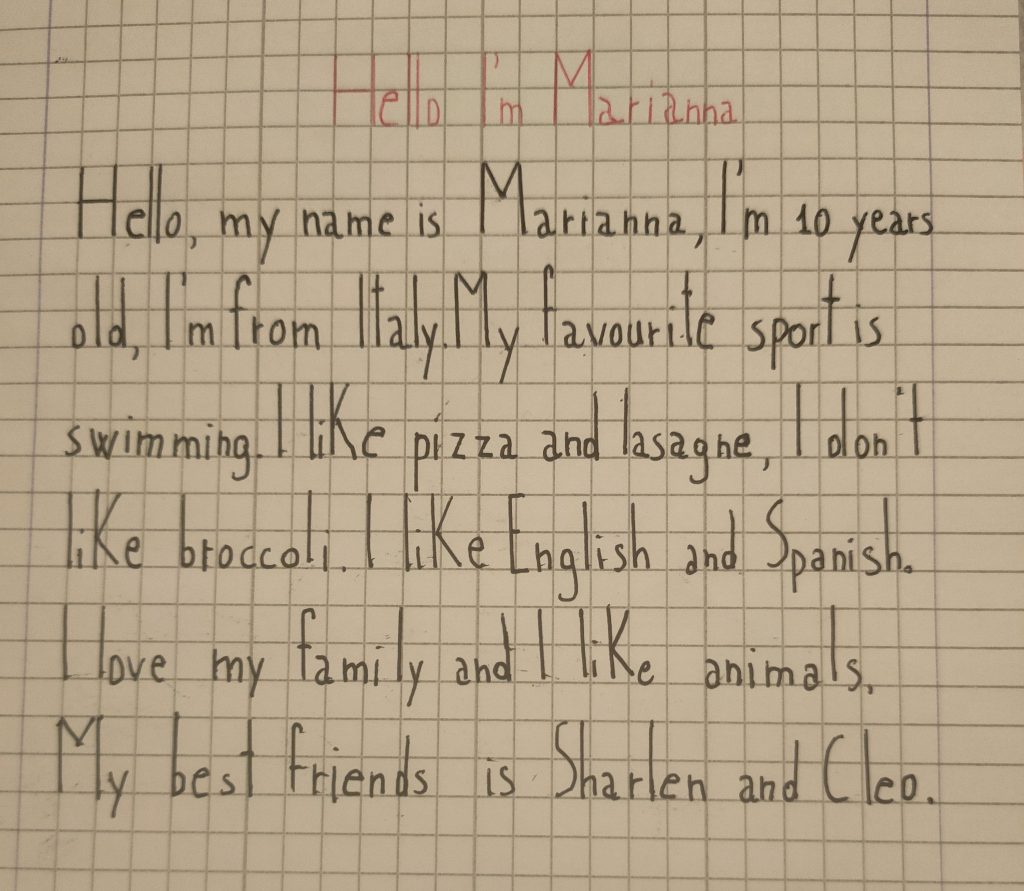 Hello I'm Marianna
Hello, my name is Marianna, I'm 10 years
old, I'm from Italy. My favourite sport is
swimming. I like pizza and lasagne, I don't
like broccoli. I like English and Spanish.
I love my family and I like animals.
My best friends is Sharlen and Cleo.